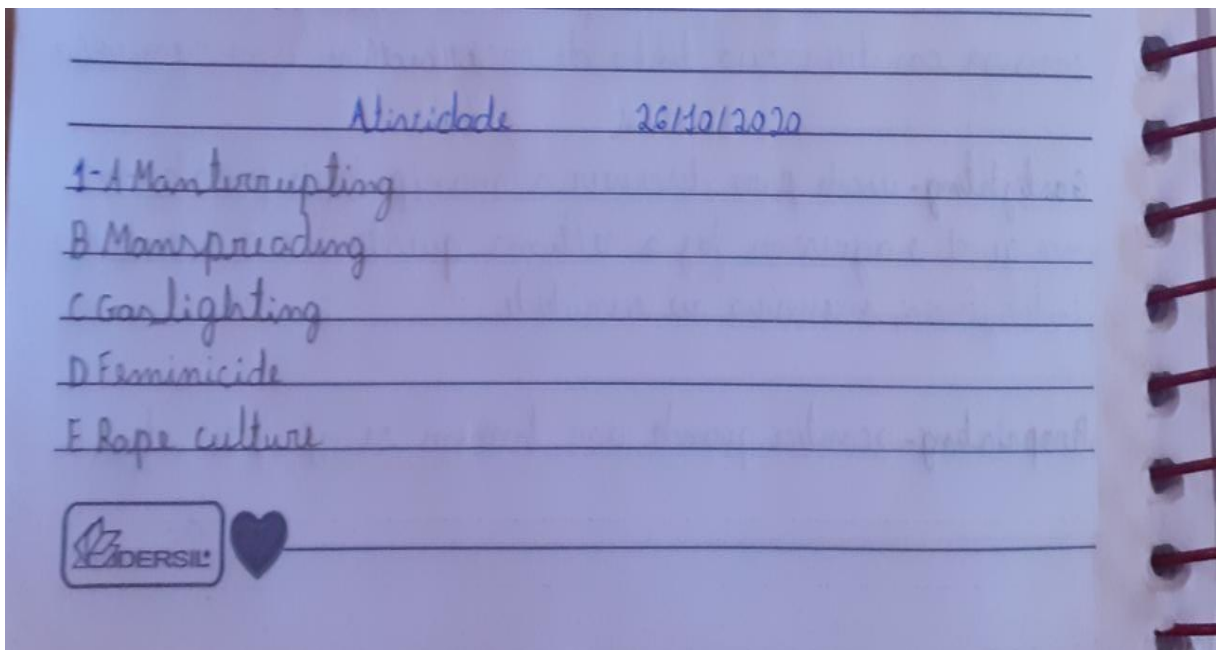 Atividade 26/10/2020
1-A Manterrupting
B Manspreading
C Gaslighting
D Feminicide
E Rape culture
CADERSIL®